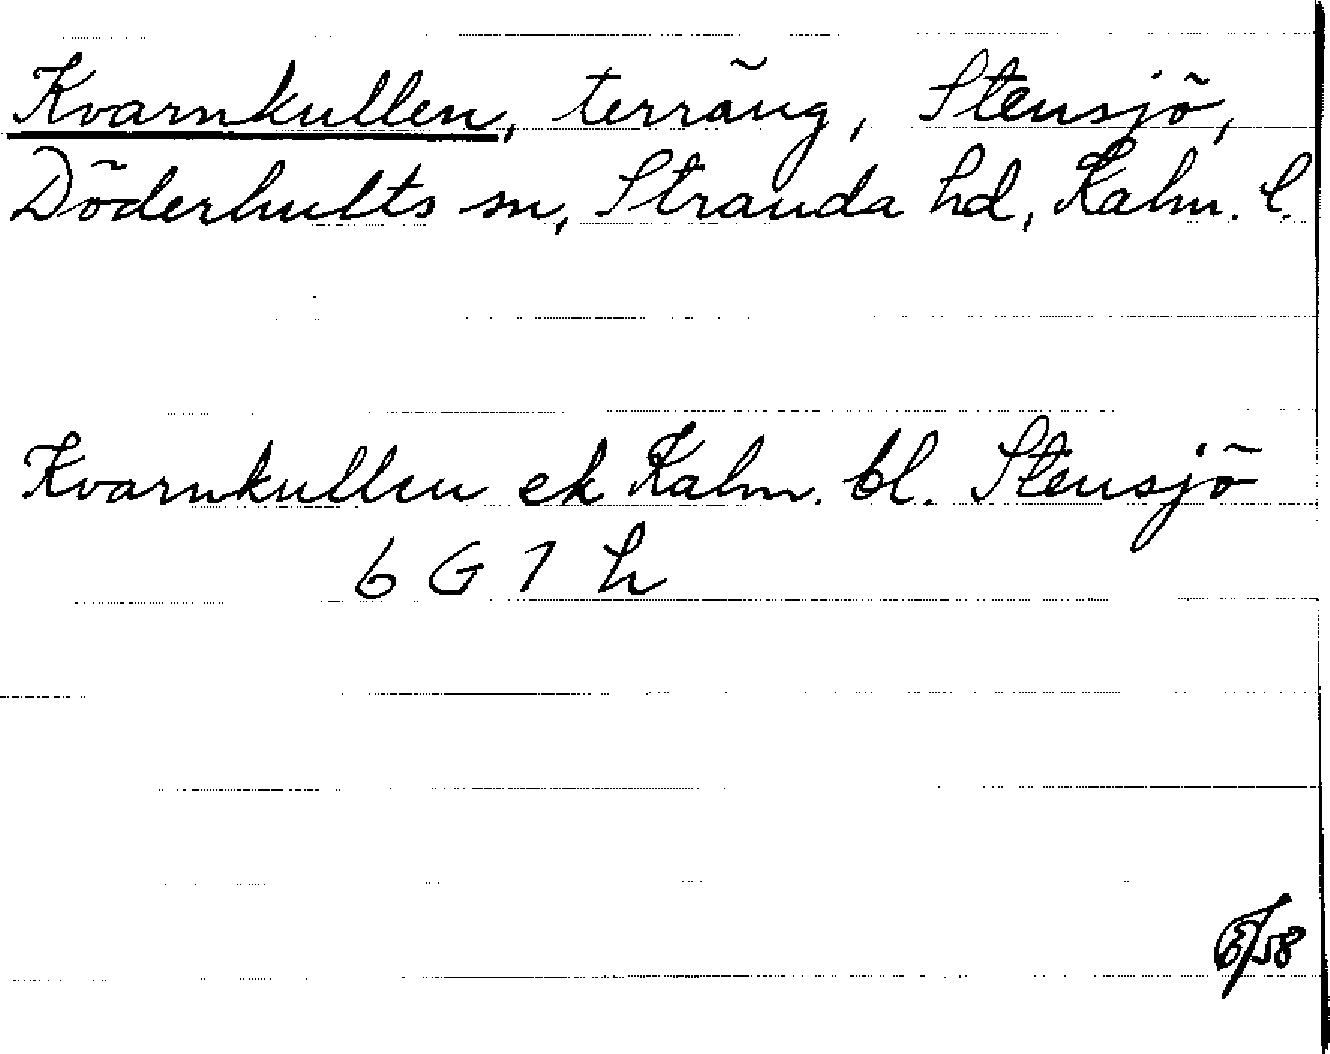 Kvarnkullen, terräng, Stensjö,
Döderhults sn, Stranda hd, Kalm. l.
Kvarnkullen ek Kalm. bl. Stensjö
6 G 7 h